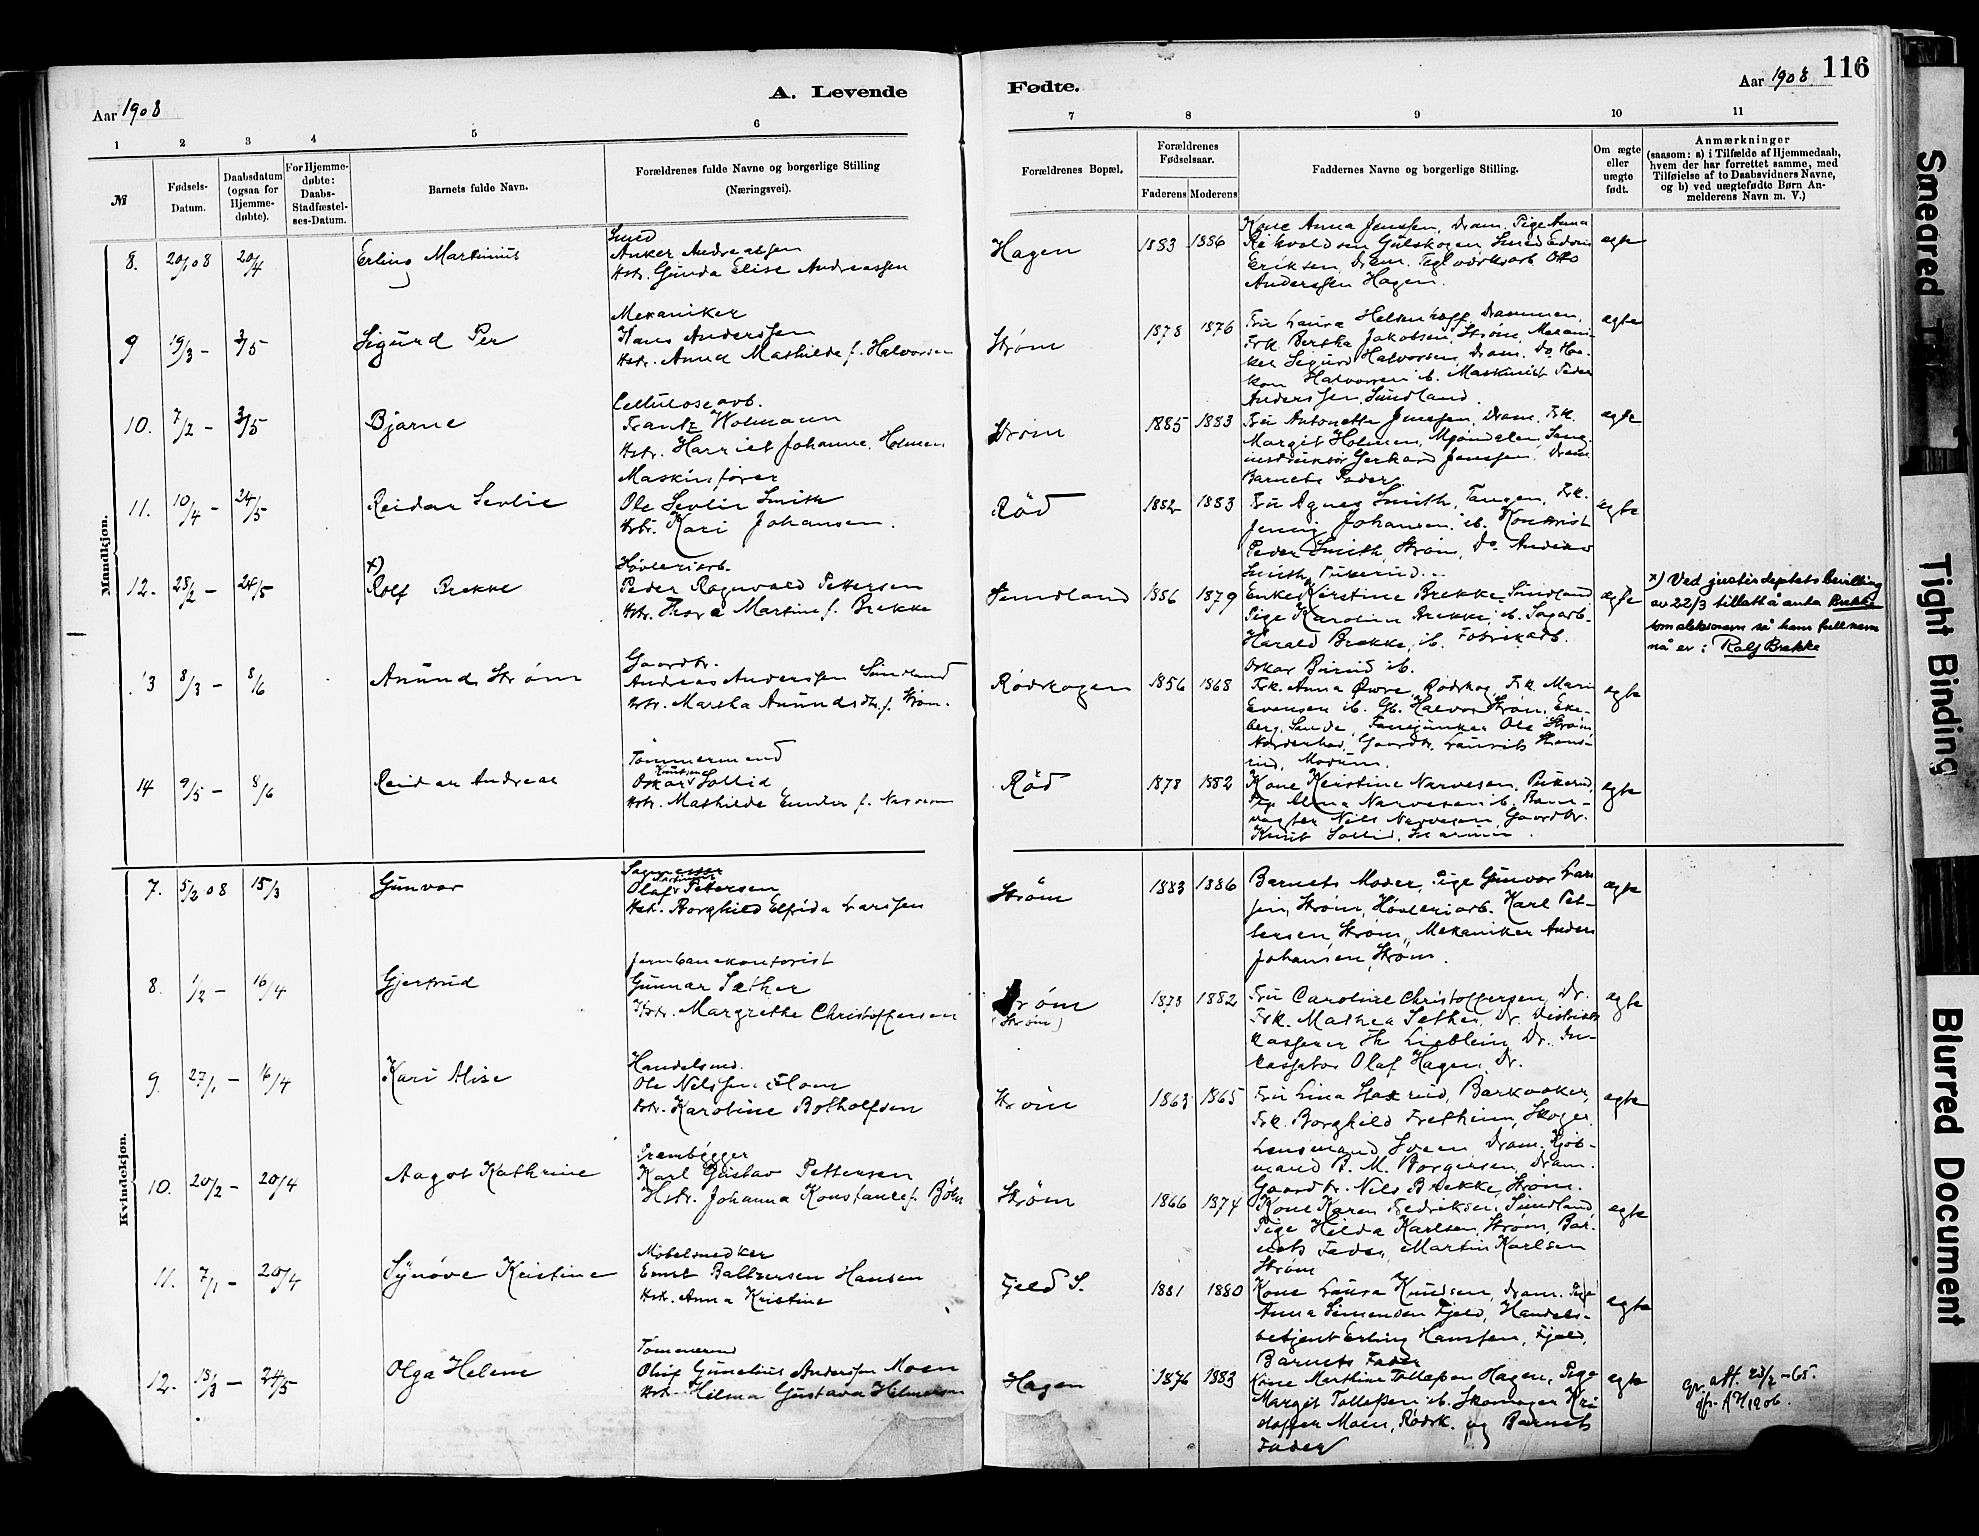 Aar 1908
A. Levende
Fødte.
Aar 1908
116
1 2 3 4 5 6 7 8 9 10 11
№
Fødsels-
Datum.
Daabsdatum
(ogsaa for
Hjemme-
døbte).
For Hjemme-
døbte:
Daabs-
Stadfæstel-
ses-Datum.
Barnets fulde Navn.
Forældrenes fulde Navne og borgerlige Stilling
(Næringsvei).
Forældrenes Bopæl.
Forældrenes
Fødselsaar.
Faderens Moderens
Faddernes Navne og borgerlige Stilling.
Om ægte
eller
uægte
født.
Anmærkninger
(saasom: a) i Tilfælde af Hjemmedaab,
hvem der har forrettet samme, med
Tilføielse af to Daabsvidners Navne,
og b) ved uægtefødte Børn An-
melderens Navn m. V.)
Mandkjøn.
8. 20/1 08 20/4
Erling Martinius
Smed
Anker Andreassen
Hstr. Ginda Elise Andreassen
Hagen
1883 1886
Kone Anna Jenssen, Dram. Pige Anna
Gulskogen Smed Edvin
Eriksen, Dram. Teglværksarb. Otto
Anderssen Hagen.
ægte
9 19/3 – 3/5
Sigurd Per
Mekaniker
Hans Anderssen
Hstr. Anna Mathilde f. Halvorsen
Strøm
1878 1876
Fru Laura Drammen,
Frk. Bertha Jakobsen, Strøm, Mekani-
ker Sigurd Halvorsen, Dram. Do Haa-
kon Halvorsen ib. Maskinist Peder
Anderssen, Sundland.
ægte
10. 7/2 – 3/5
Bjarne
Cellulosearb.
Frantz Holmann
Hstr. Harriet Johanne Holmen
Strøm
1885 1883
Fru Antonette Jenssen, Dram. Frk.
Margit Holmen, Mjøndalen, Sang-
instruktør Gerhard Jenssen, Dram.
Barnets Fader.
ægte
11. 10/4 – 24/5
Reidar Sevlie
Maskinfører
Ole Sevlie Smith
Hstr. Kari Johansen.
Rød
1882 1883
Fru Agnes Smith, Tangen, Frk.
Jenny Johansen, ib. Kontorist
Peder Smith, Strøm, Do Anders
Smith, Pukerud.
ægte
12. 28/2 – 24/5
x)
Rolf Brekke
Høvleriarb.
Peder Ragnvald Pettersen
Hstr. Thora Martine f. Brekke
Sundland
1886 1879
Enke Kerstine Brekke Sundland
Pige Karoline Brekke, ib. Sagarb.
Harald Brekke, ib. Fabrikarb.
Oskar ib.
ægte
x) Ved justisdeptets bevilling
av 22/3 tillatt å anta Brekke
som slektsnavn så hans fulle navn
nå er: Rolf Brekke
13 8/3 – 8/6
Anund Strøm
Gaardbr.
Andreas Anderssen Sundland
Hstr. Martha Anundsdtr. f. Strøm.
Rødskogen
1856 1868
Frk. Anna Øwre, Rødskog, Frk. Marie
Evensen ib. Gb. Halvor Strøm, Eke-
berg, Sande, Fanejunker Ole Strøm,
Norderhov, Gaardbr. Laurits
rud, Modum.
ægte
14 9/5 – 8/6
Reidar Andreas
Tømmermand
Oskar Knutsen Sollid
Hstr. Mathilde f. Narvesen
Rød
1878 1882
Kone Kerstine Narvesen, Pukerud,
Pige Alma Narvesen ib. Bane-
vogter Nils Narvesen, Gaardbr.
Knut Sollid,
ægte
Kvindekjøn.
7. 5/2 08 15/3
Gunvor
Olaf Petersen
Hstr. Borghild Elfrida Larssen
Strøm
1883 1886
Barnets Moder, Pige Gunvor Lars-
sen, Strøm, Høvleriarb. Karl Pet-
tersen, Strøm, Mekaniker Anders
Johansen, Strøm.
ægte
8. 1/2 – 16/4
Gjertrud
Jernbanekontorist
Gunnar Sæther
Hstr. Margrethe Christoffersen
Strøm
(Strøm)
1873 1882
Fru Caroline Christoffersen, Dr.
Frk. Mathea Sæther, Dr. Distrikts-
kasserer Th. Lieblein, Dr. In-
kassator Olaf Hagen, Dr.
ægte
9. 27/1 – 16/4
Kari Alise
Handelsmd.
Ole Nilssen Hom
Hstr. Karoline Botholfsen
Strøm
1863 1865
Fru Lina Barkaaker,
Frk. Borghild Fretheim, Skoger,
Lensmand Sveen, Dram. Kjøb-
mand B. M. Borgersen, Dram.
Gaardbr. Nils Brekke, Strøm.
ægte
10. 20/2 – 20/4
Aagot Kathrine
Prambygger
Karl Gustav Pettersen
Hstr. Johanna Konstance f. Bøhn
Strøm
1866 1874
Kone Karen Fredriksen, Sundland,
Pige Hilda Karlsen, Strøm, Bar-
nets Fader, Martin Karlsen
Strøm
ægte
11. 7/1 – 20/4
Synøve Kristine
Møbelsnedker
Ernst Baltzersen Hansen
Hstr. Anna Kristine
Fjeld S.
1881 1880
Kone Laura Knudsen, Dram. Pige
Anna Simensen Fjeld, Handels-
betjent Erling Hanssen, Fjeld,
Barnets Fader
ægte
12. 15/3 – 24/5
Olga Helene
Tømmermd
Oluf Gunelius Anderssen Moen
Hstr. Hilma Gustava Helmersen
Hagen
1876 1883
Kone Marthine Tollefsen Hagen, Pige
Margit Tollefsen ib. Skomager Kri-
stoffer Moen, Rødsk. og Barnets
Fader
ægte
att. 23/2 – 65.
1206.
Smeared
Tight Binding
Blurred Document